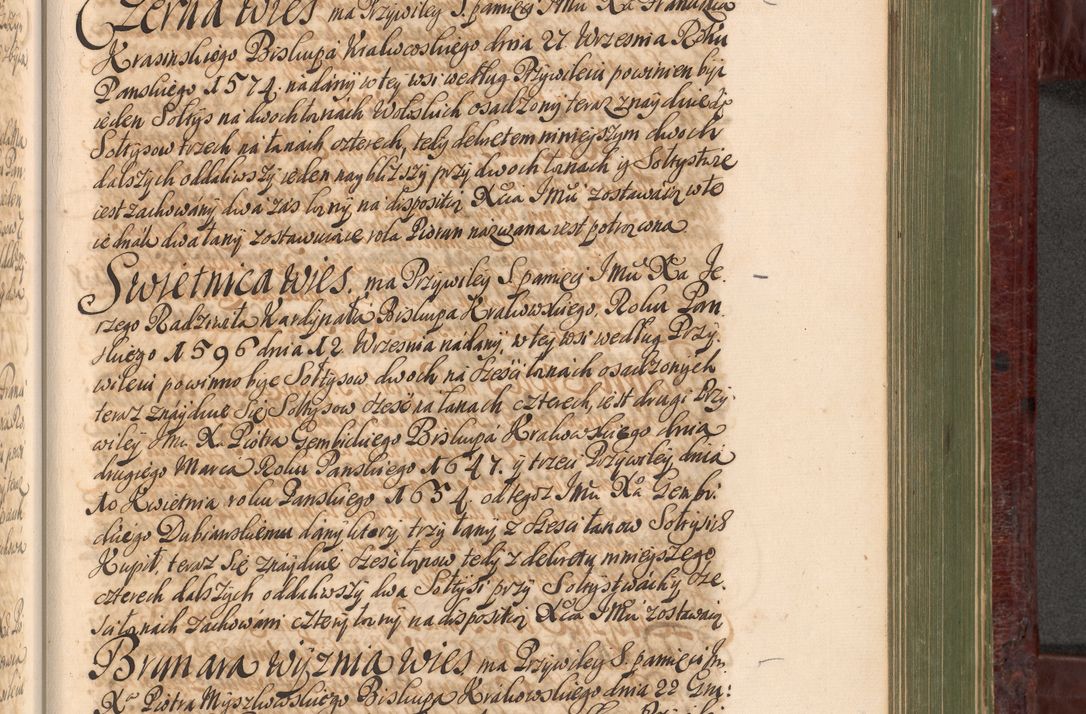 Czerna wies ma Przywiley S. pamięci Jmu Xa Franciszka
Krasinskiego Biskupa Krakowskiego dnia 27. Wrzesnia Roku
Panskiego 1574. nadany w tey wsi według Przywileiu powinien być
ieden Sołtys na dwoch łanach Wolskich osadzony teraz znayduie się
Sołtysow trzech na łanach czterech, tedy dekretem ninieyszym dwoch
dalszych oddaliwszy ieden naybliższy przy dwoch łanach y Sołtystwie
iest zachowany dwa zas łany na disposityą Xcia Jmu zostawaią w te
iednak dwa łany zostawuiące rola Pioran nazwana iest potrącona
Swietnica wies, ma Przywiley S. pamięci Jmu Xa Je
rzego Radziwiła Kardynała Biskupa Krakowskiego, Roku Pan
skiego 1596 dnia 12. Wrzesnia nadany, w tey wsi według Przy
wileiu powinno byc Sołtysow dwoch na sześci łanach osadzonych
teraz znayduie się Sołtysow sześć na łanach czterech, iest drugi Przy
wiley Jmu X. Piotra Gembickiego Biskupa Krakowskiego dnia
drugiego Marca Roku Panskiego 1647. y trzeci Przywiley dnia
10 Kwietnia roku Panskiego 1654. od tegoz Jmu Xa Gembi
ckiego Dubianskiemu dany ktory trzy łany z sześci łanow Sołtysich
Kupił, teraz się znayduie sześć łanow, tedy z dekretu ninieyszego
czterech dalszych oddaliwszy dwa Sołtysi przy Sołtystwach y sze
sci łanach zachowani cztery łany na disposityą Xcia Jmu zostawaią
Brunara wyznia wies, ma Przywiley S. pamięci Jm
Xa Piotra Myszkowskiego Biskupa Krakowskiego dnia 22 Gru: